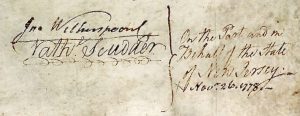 Jno Witherspoon
Nathl Scudder
On the Part and in
Behalf of the State
of New Jersey.
Novr. 26. 1778.